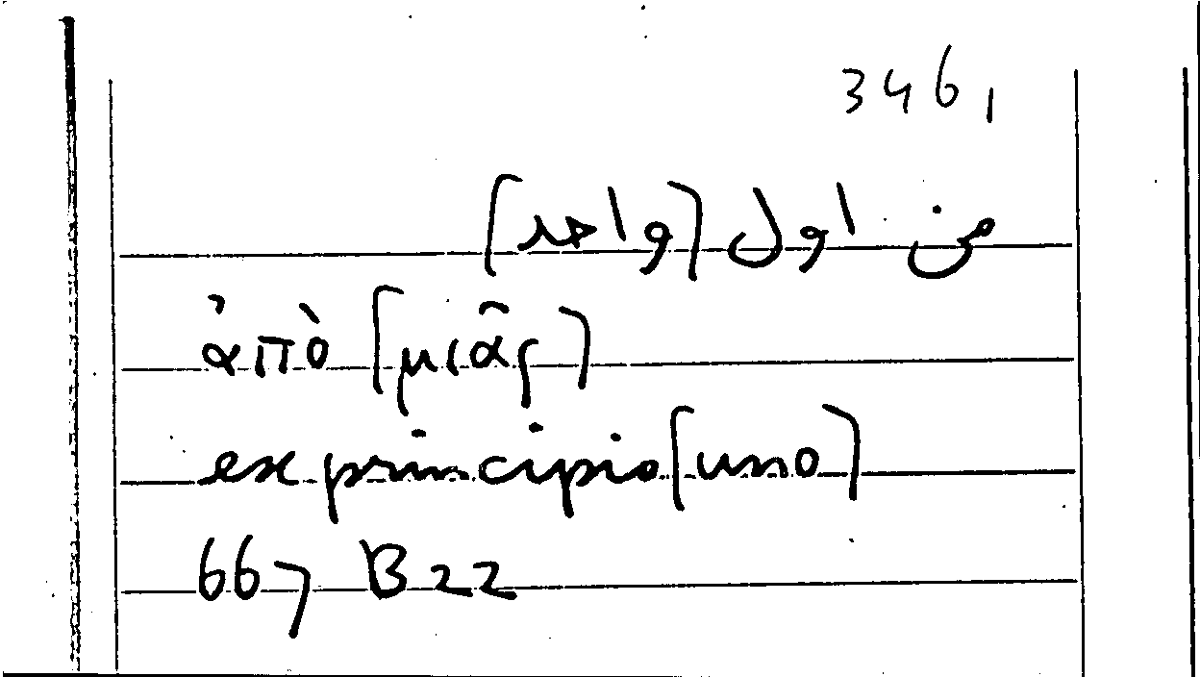 346,
من اول [واحد]
ἀπὸ [μιᾶς]
ex principio [uno]
667 B 22